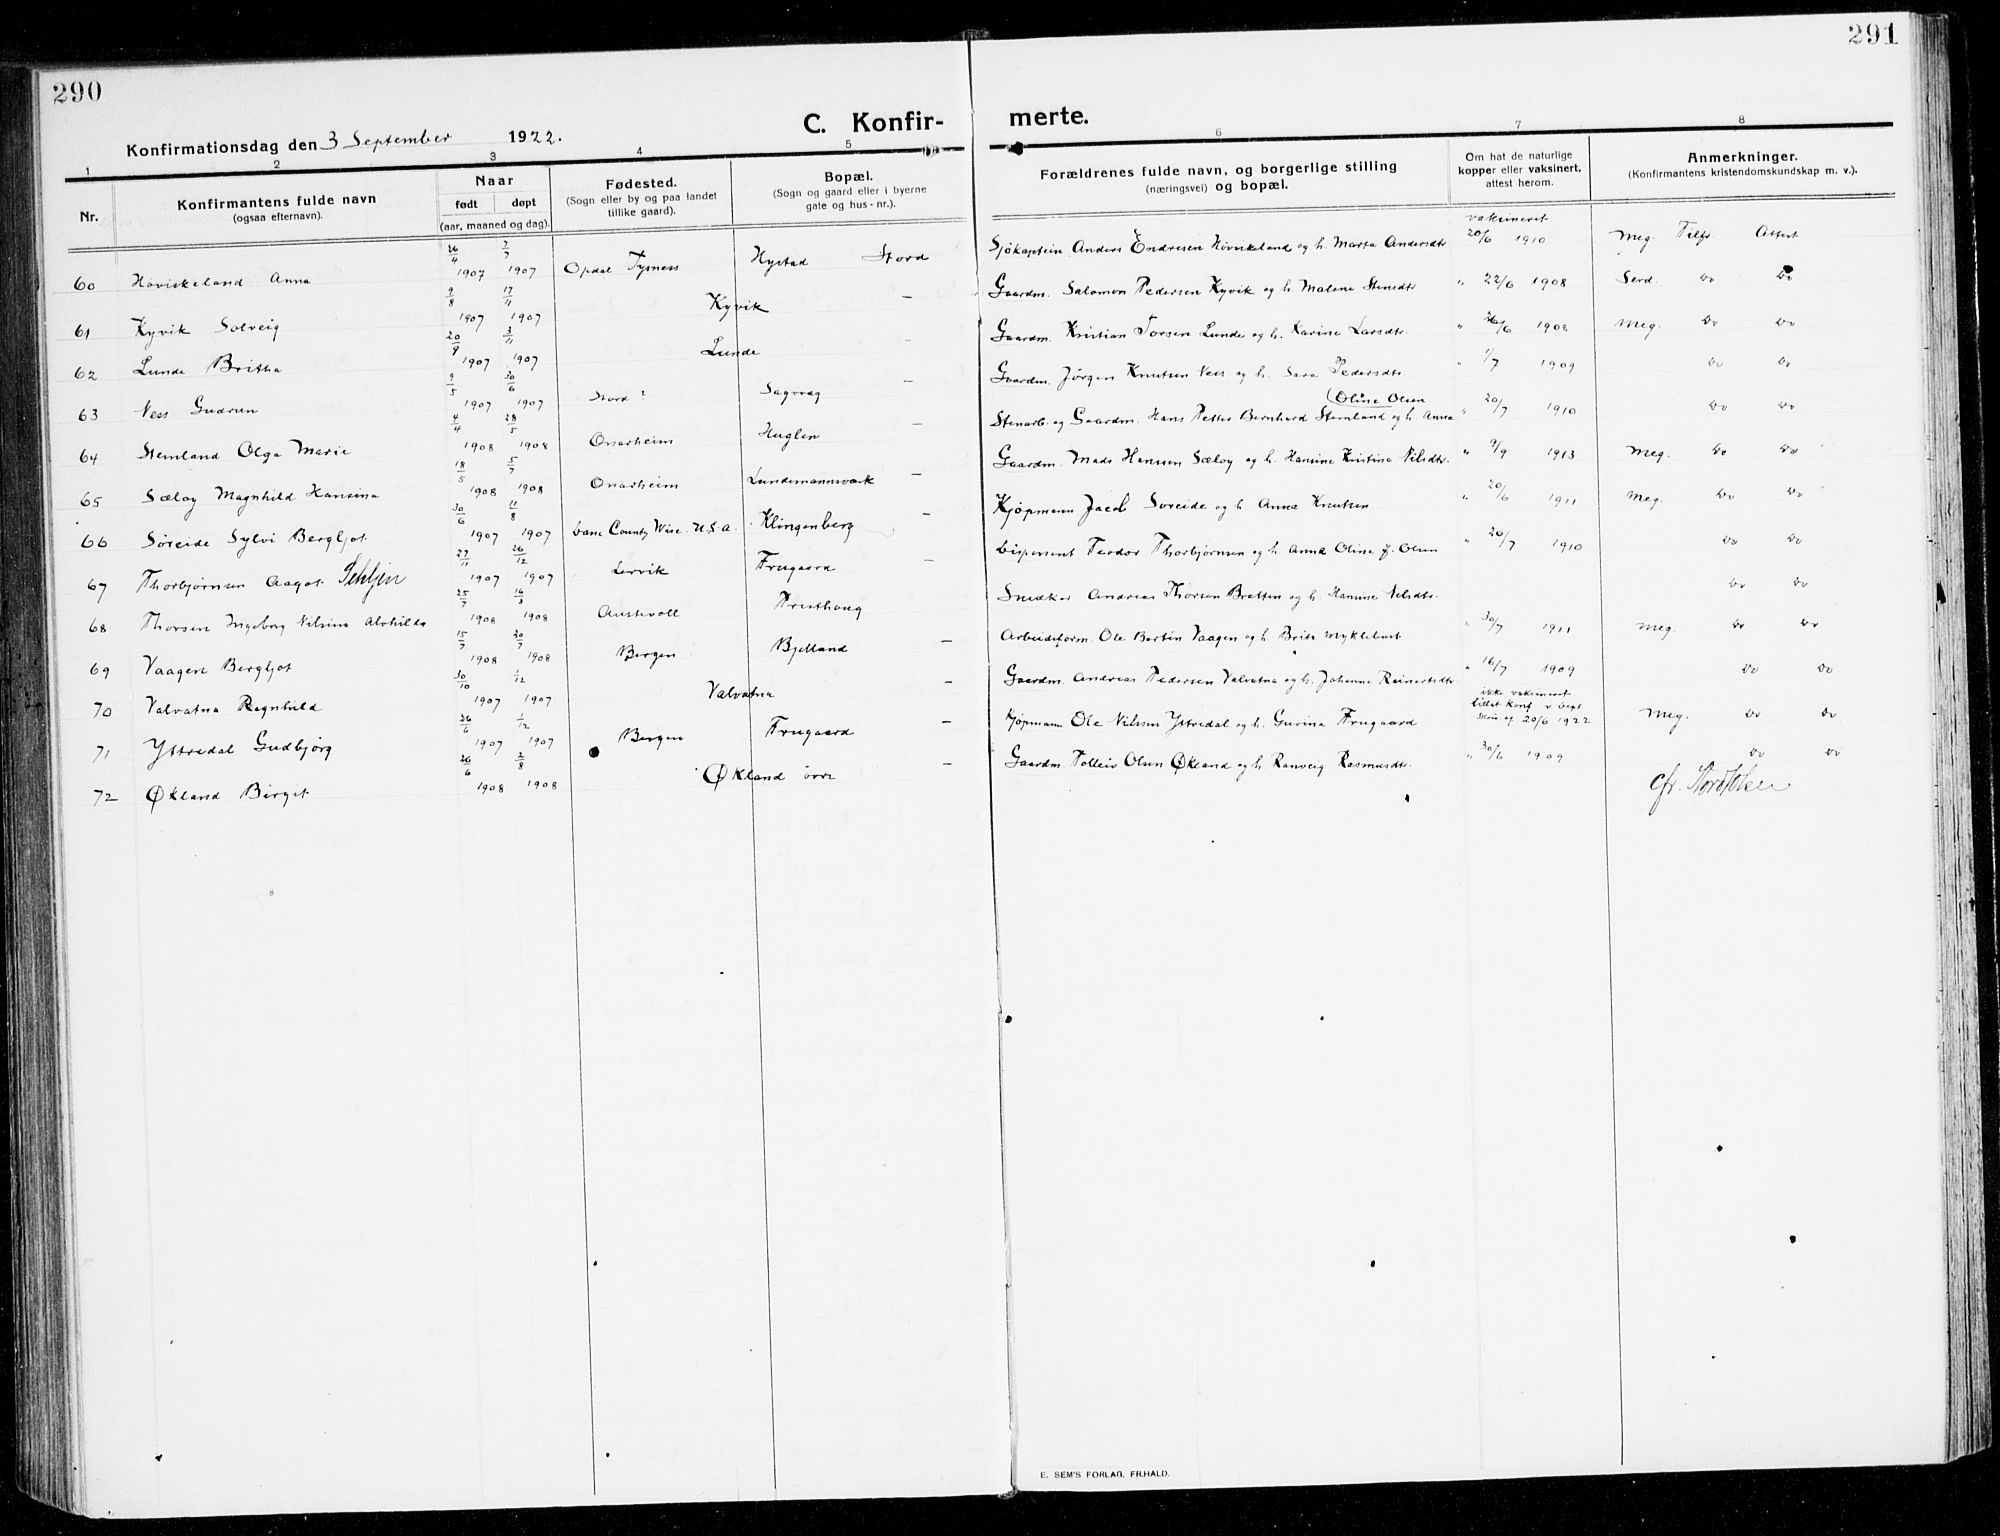 290
291
C. Konfir- merte.
Konfirmationsdag den 3 September 1922.
1 2 3 4 5 6 7 8
Nr.
Konfirmantens fulde navn
(ogsaa efternavn).
Naar
født døpt
(aar, maaned og dag).
Fødested.
(Sogn eller by og paa landet
tillike gaard).
Bopæl.
(Sogn og gaard eller i byerne
gate og hus-nr.).
Forældrenes fulde navn, og borgerlige stilling
(næringsvei) og bopæl.
Om hat de naturlige
kopper eller vaksinert,
attest herom.
Anmerkninger.
(Konfirmantens kristendomskundskap m. v.).
60 Høviskeland Anna 26/4 1907 7/7 1907 Opdal Tysness Hystad Stord Sjøkaptein Anders Endresen Høviskeland og h. Marta Andersdtr vaksineret 20/6 1910 Meg. Tilfr. Attest
61 Kyvik Solveig 9/8 1907 17/11 1907 Kyvik — Gaardm. Salomon Pedersen Kyvik og h. Malene Stensdtr " 22/6 1908 Serd. Do Do
62 Lunde Britha 20/9 1907 3/11 1907 Lunde - Gaardm. Kristian Torsen Lunde og h. Karine Larsdtr. " 26/6 1908 Meg. Do Do
63 Ness Gudrun 9/5 1907 30/6 1907 Stord ? Sagvaag — Gaardm. Jørgen Knutsen Ness og h. Sara Pedersdtr " 1/7 1909 Do Do
64 Stemland Olga Marie 4/4 1908 28/5 1908 Onarheim Huglen — Stenarb. og Gaardm. Hans Petter Bernhard Stemland og h. Anna (Oline Olsen " 20/7 1910 Do Do
65 Sæloy Magnhild Hansina 18/5 1908 5/7 1908 Onarheim Lundemannsvæk — Gaardm. Mads Hanssen Sæloy og h. Hansine Kristine Nilsdtr. " 9/9 1913 Meg. Do Do
66 Søreide Sylvi Bergljot 30/6 1907 11/8 1907 Dane County Wisc. U.S.A. Klingenberg — Kjøpmann Jacob Søreide og h. Anna Knutsen " 20/6 1911 Meg. Do Do
67 Thorbjørnsen Aagot Sehljin 27/11 1907 26/12 1907 Lervik Frugaard — Disponent Teodor Thorbjørnsen og h. Anna Oline J. Olsen " 20/7 1910 Do Do
68 Thorsen Ingeborg Nilsina Alvhilda 25/7 1908 16/8 1908 Austevoll Presthaug Snedker Andreas Thorsen Bratten og h. Hansine Nilsdtr. Do Do
69 Vaagen Bergljot 15/7 1908 20/7 1908 Bergen Bjelland — Arbeidsform. Ole Bertin Vaagen og h. Brita Myklebust " 30/7 1911 Meg. Do Do
70 Valvatna Ragnhild 30/10 1907 1/12 1907 Valvatna — Gaardm. Andreas Pedersen Valvatna og h. Johanne Reinertsdtr " 16/7 1909 Do Do
71 Ystredal Gudbjørg 26/6 1907 1/12 1907 Bergen Frugaard — Kjøpmann Ole Nilsen Ystredal og h. Gurina Frugaard ikke vaksineret
tillat Konf v Dept
skriv af 20/6 1922 Meg. Do Do
72 Økland Birget 26/6 1908 2/8 1908 Økland øvre — Gaardm. Tolleiv Olsen Økland og h. Ranveig Rasmusdtr. " 30/6 1909 Do Do
E. SEM'S FORLAG, FR.HALD.